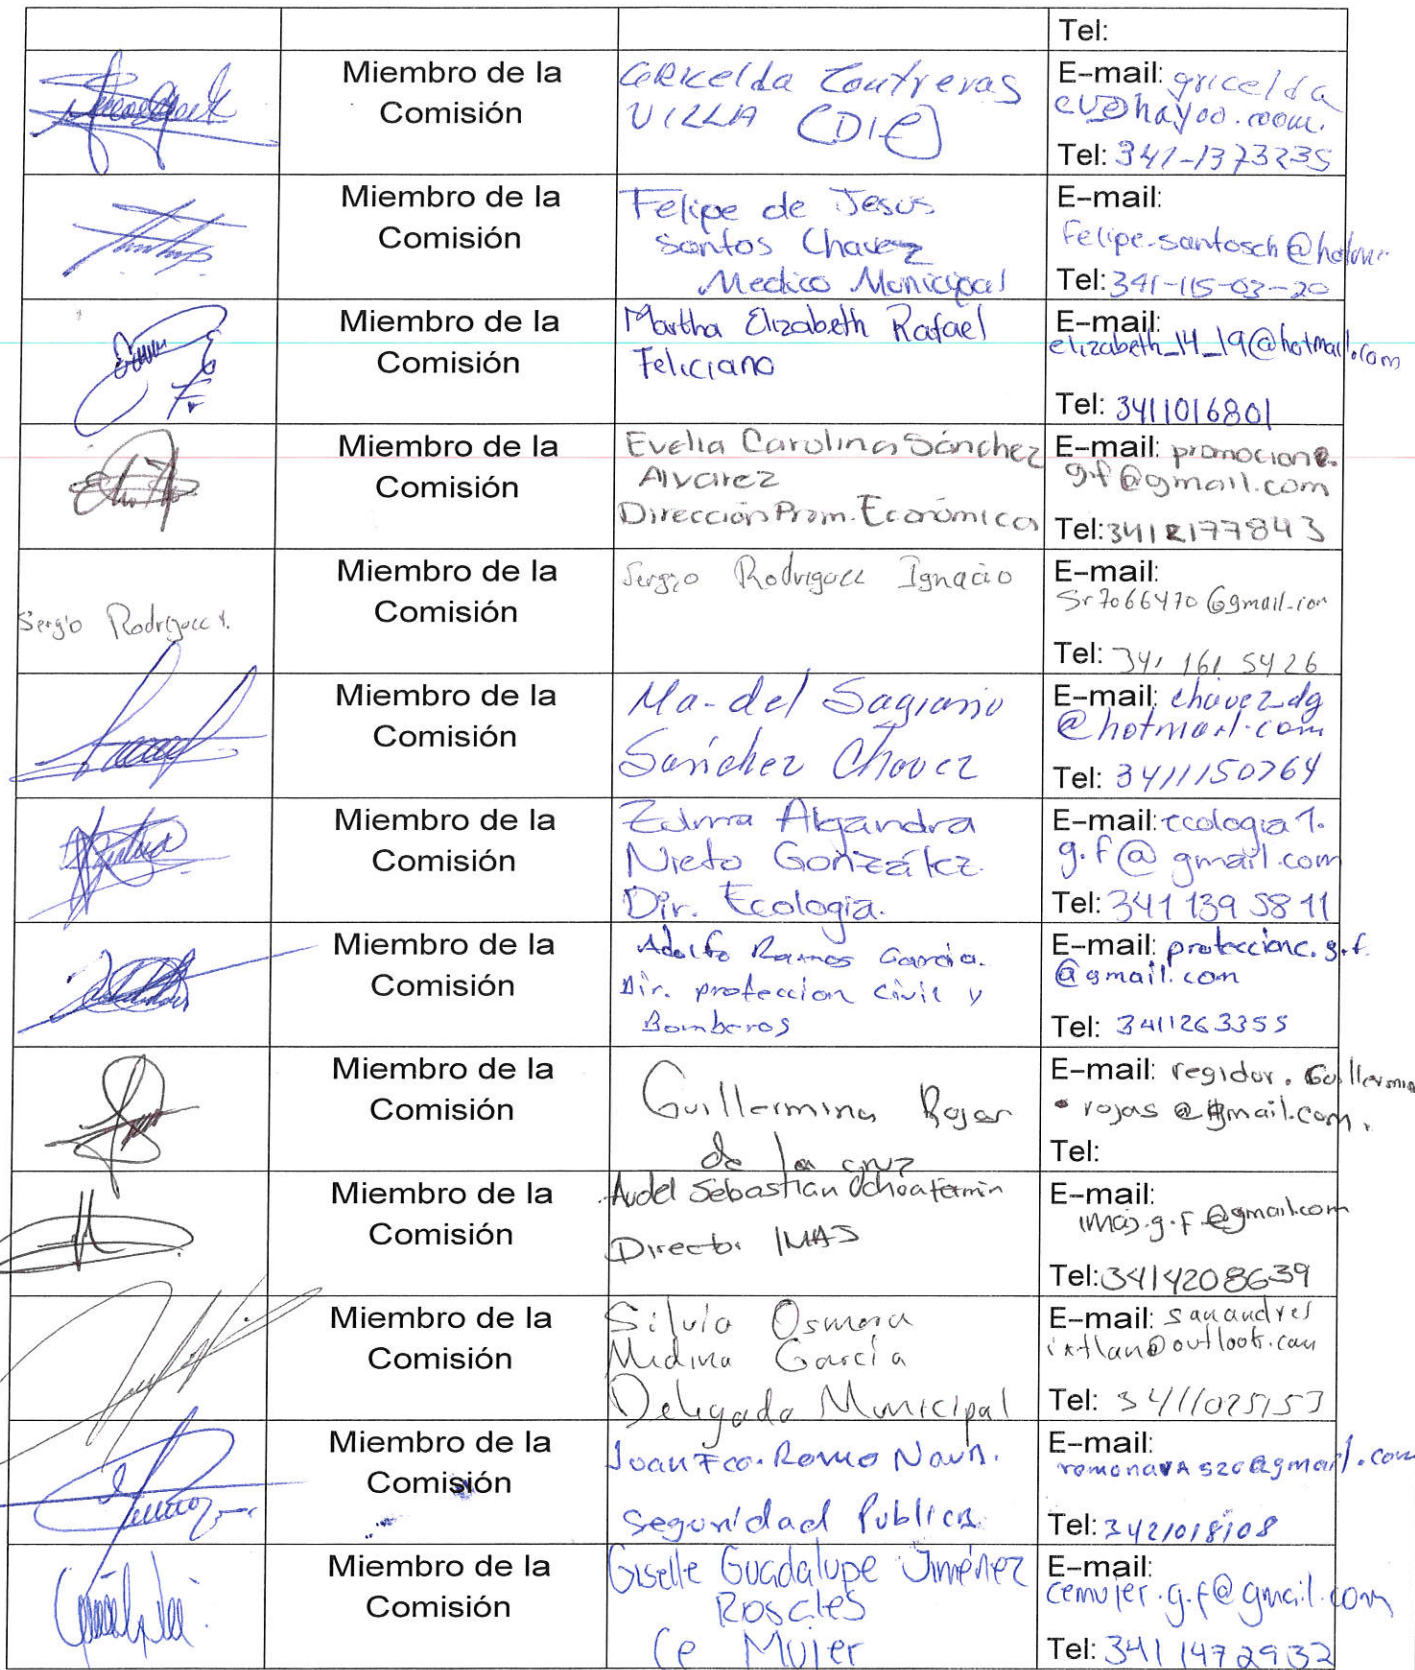 Tel:
Miembro de la
Comisión
GRICelda Contreras
VILLA (DIF)
E-mail: gricelda
cv@hayoo.coom.
Tel: 341-1373235
Miembro de la
Comisión
Felipe de Jesus
Santos Chavez
Medico Municipal
E-mail:
felipe.santosch@hotm
Tel: 341-115-03-20
Miembro de la
Comisión
Martha Elizabeth Rafael
Feliciano
E-mail:
elizabeth_14_19@hotmail.com
Tel: 3411016801
Miembro de la
Comisión
Evelia Carolina Sánchez
Alvarez
Dirección Prom. Económica
E-mail: promocione.
g.f@gmail.com
Tel: 3412177843
Sergio Rodriguez I.
Miembro de la
Comisión
Sergio Rodriguez Ignacio
E-mail:
Sr7066470@gmail.com
Tel: 341 161 5426
Miembro de la
Comisión
Ma. del Sagrario
Sánchez Chavez
E-mail: chavez_dg
@hotmail.com
Tel: 3411150764
Miembro de la
Comisión
Zulma Alejandra
Nieto González.
Dir. Ecología.
E-mail: ecologia1.
g.f@gmail.com
Tel: 341 139 58 11
Miembro de la
Comisión
Adolfo Ramos García.
Dir. proteccion Civil y
Bomberos
E-mail: proteccionc.g.f.
@gmail.com
Tel: 3411263355
Miembro de la
Comisión
Guillermina Rojas
de la cruz
E-mail: regidor.Guillermina
.rojas@gmail.com.
Tel:
Miembro de la
Comisión
Audel Sebastian Ochoa fermin
Director IMAJ
E-mail:
imaj.g.f@gmail.com
Tel: 3414208639
Miembro de la
Comisión
Silvia Osmara
Medina García
Delegada Municipal
E-mail: sanandres
ixtlan@outlook.com
Tel: 3411025153
Miembro de la
Comisión
Juan Fco. Romo Nava.
Seguridad Publica
E-mail:
romonavA520@gmail.com
Tel: 3421018108
Miembro de la
Comisión
Giselle Guadalupe Jiménez
Rosales
Ce Mujer
E-mail:
cemujer.g.f@gmail.com
Tel: 341 147 2932